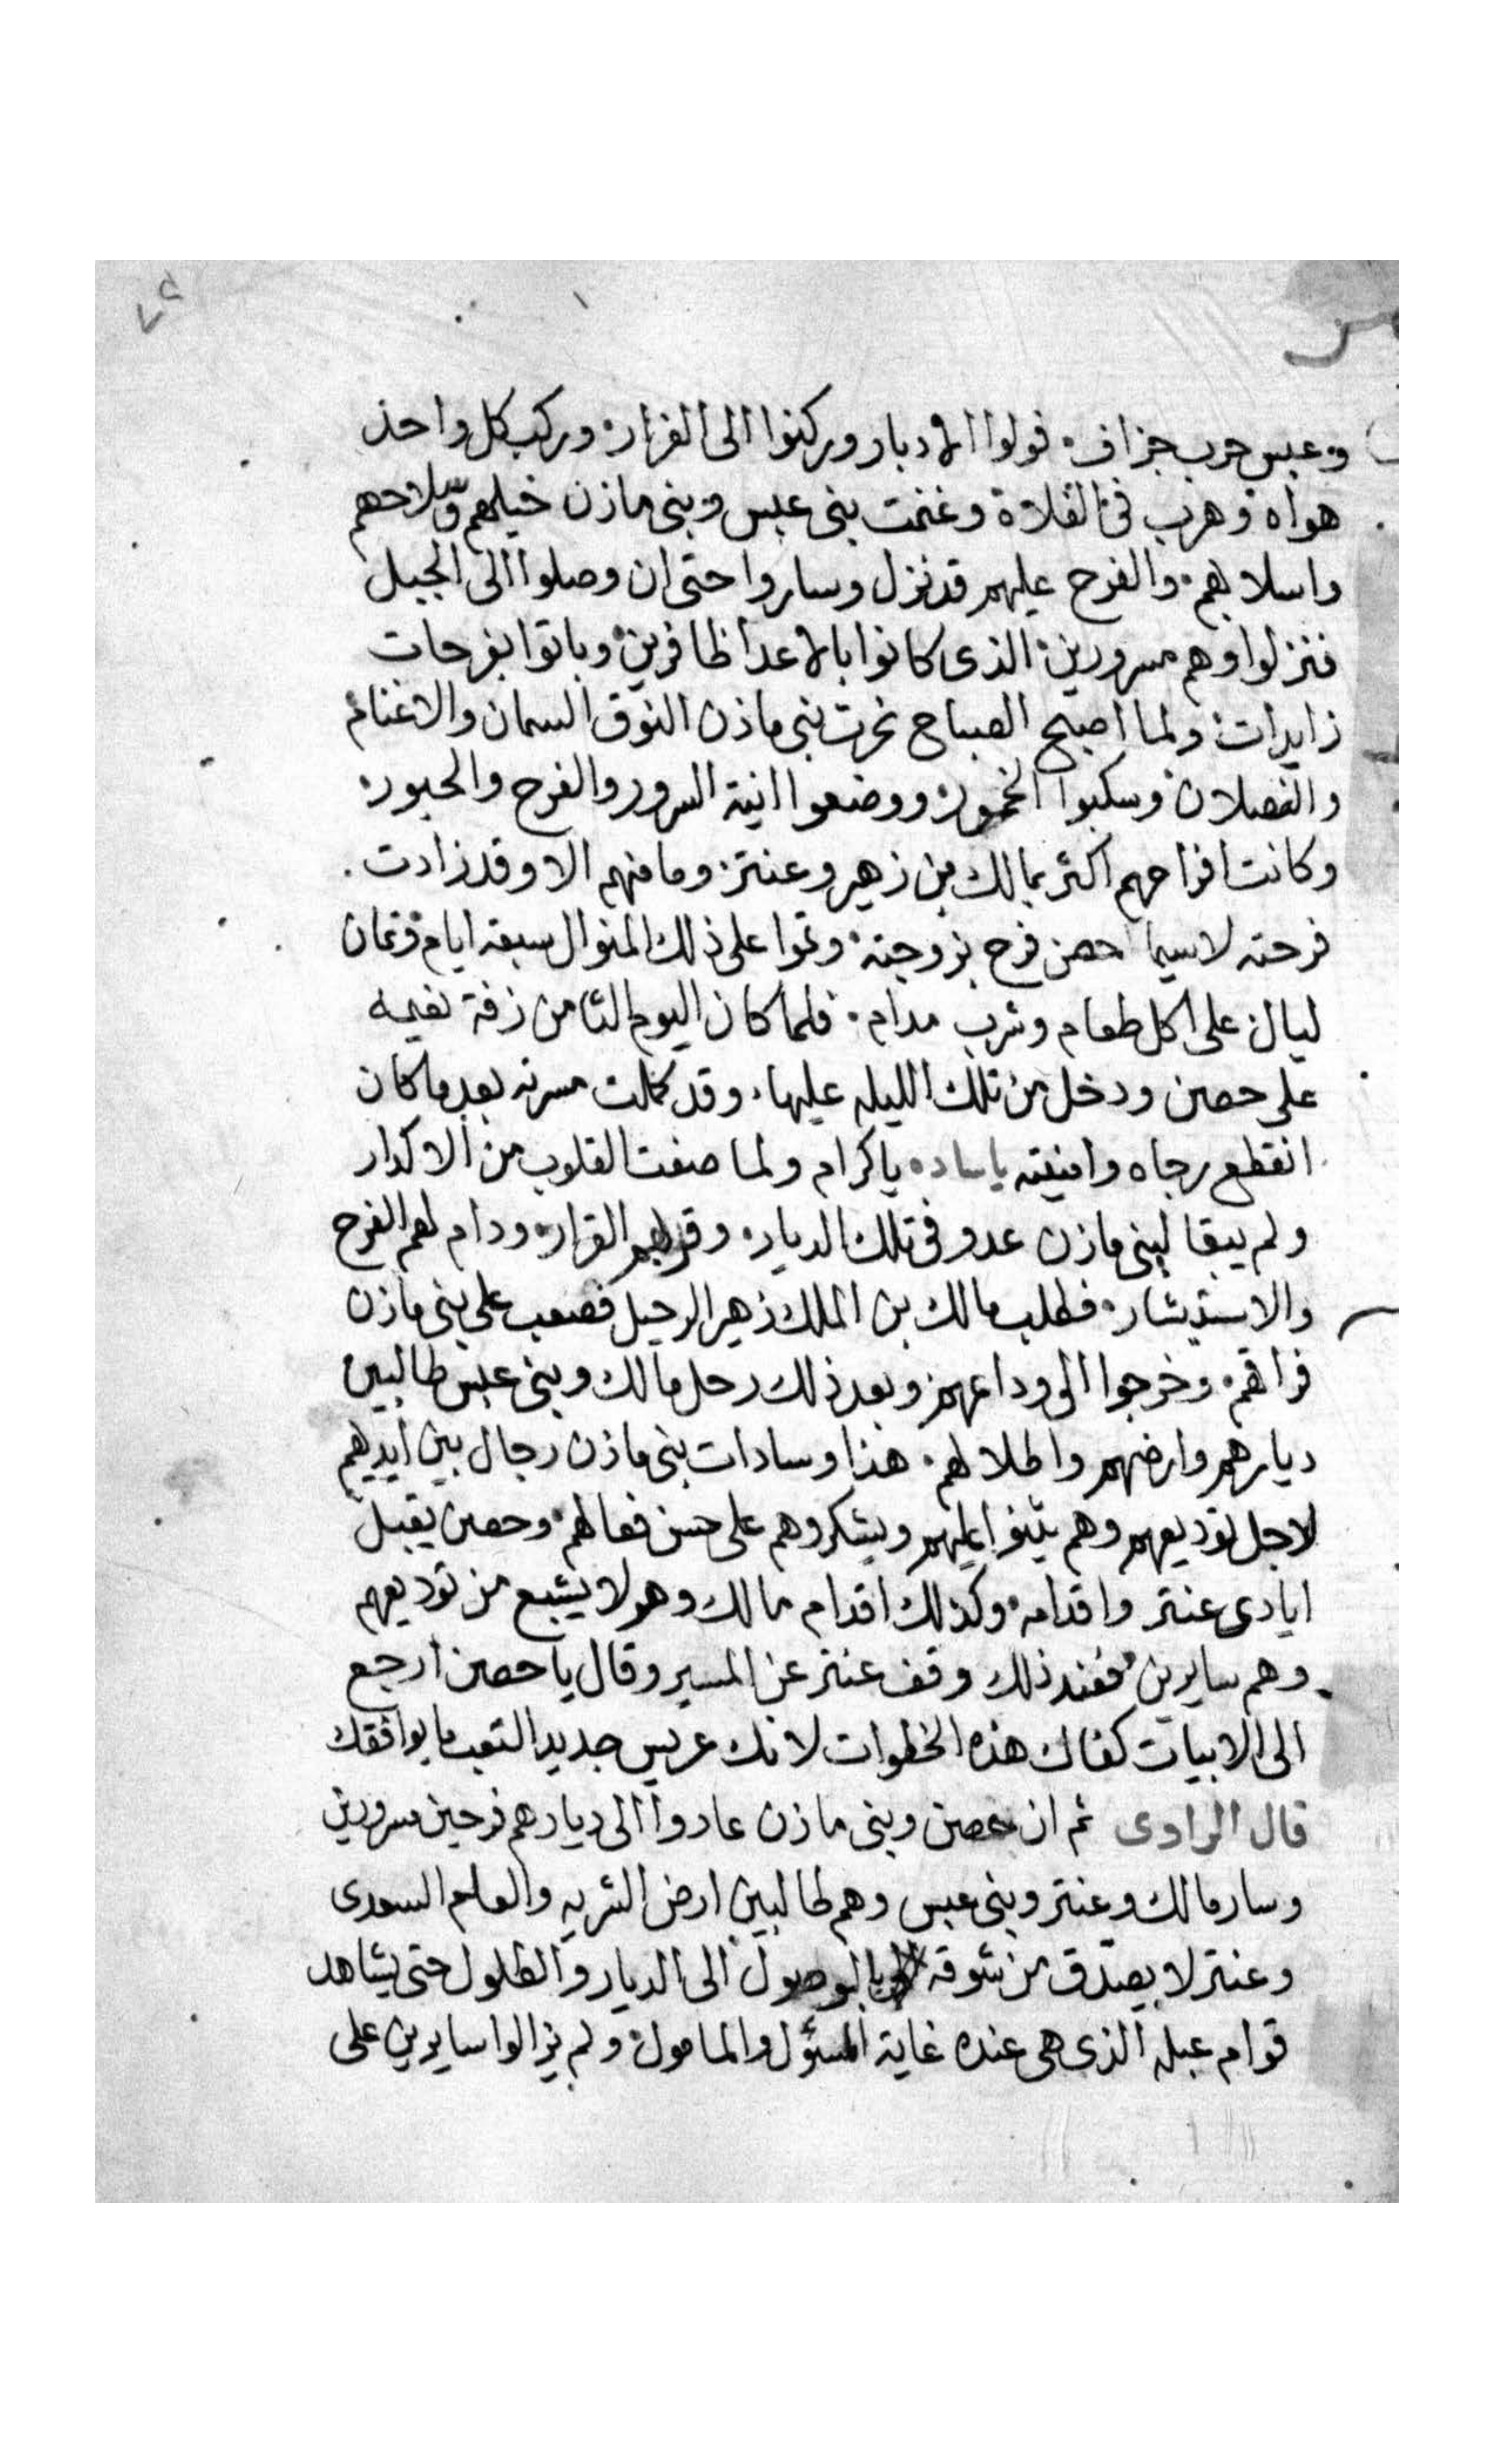 وعبس حرب جزاف. فولوا الادبار وركنوا الى الفرار. وركب كل واحد
هواه وهرب فى الفلاة وغنمت بنى عبس وبنى مازن خيلهم وسلاحهم
واسلابهم. والفرح عليهم قد نزل وساروا حتى ان وصلوا الى الجبل
فنزلوا وهم مسرورين. الذى كانوا بالاعدا ظافرين. وباتوا بفرحات
زايدات. ولما اصبح الصباح نحرت بنى مازن النوق السمان والاغنام
والفصلان وسكبوا الخمور. ووضعوا انية السرور والفرح والحبور.
وكانت افراحهم اكثر بمالك بن زهير وعنتر. وما منهم الا وقد زادت.
فرحته لاسيما حصن فرح بزوجته. وتموا على ذلك المنوال سبعه ايام وثمان
ليال. على اكل طعام وشرب مدام. فلما كان اليوم الثامن زفة نعيمه
على حصن ودخل من تلك الليله عليها. وقد كملت مسرته بعد ما كان
انقطع رجاه وامنيته ياساده ياكرام ولما صفت القلوب من الاكدار
ولم يبقا لبنى مازن عدو فى تلك الديار. وقر بهم القرار. ودام لهم الفرح
والاستبشار. فطلب مالك بن الملك زهير الرحيل فصعب على بنى مازن
فراقهم. وخرجوا الى وداعهم. وبعد ذلك رحل مالك وبنى عبس طالبين
ديارهم وارضهم واطلالهم. هذا وسادات بنى مازن رجال بين ايديهم
لاجل توديعهم وهم يثنوا عليهم ويشكروهم على حسن فعالهم. وحصن يقبل
ايادى عنتر واقدامه. وكذلك اقدام مالك وهو لا يشبع من توديعهم
وهم سايرين. فعند ذلك وقف عنتر عن المسير وقال يا حصن ارجع
الى الابيات كفاك هذه الخطوات لانك عريس جديد التعب ما يوافقك
قال الراوى ثم ان حصن وبنى مازن عادوا الى ديارهم فرحين مسرورين
وسار مالك وعنتر وبنى عبس وهم طالبين ارض الشربه والعلم السعدى
وعنتر لا يصدق من شوقه بالوصول الى الديار والطلول حتى يشاهد
قوام عبله الذى هى عنده غاية المسؤل والمامول. ولم يزالوا سايرين على